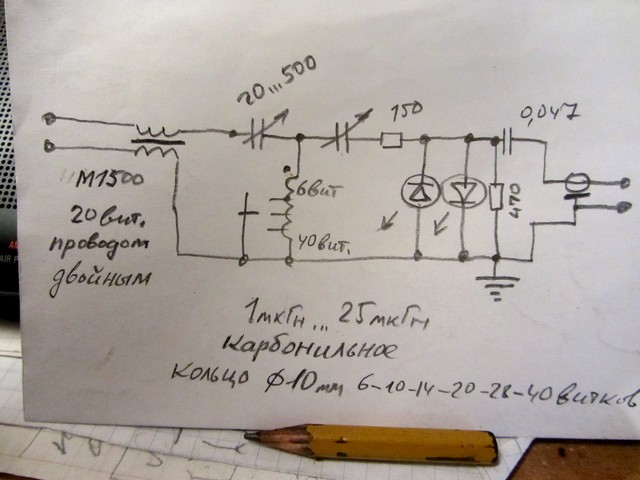 20...500
150
0,047
М1500
20вит.
проводом
двойным
6вит
40вит.
470
1мкГн...25мкГн
Карбонильное
кольцо Ф10мм 6-10-14-20-28-40витков